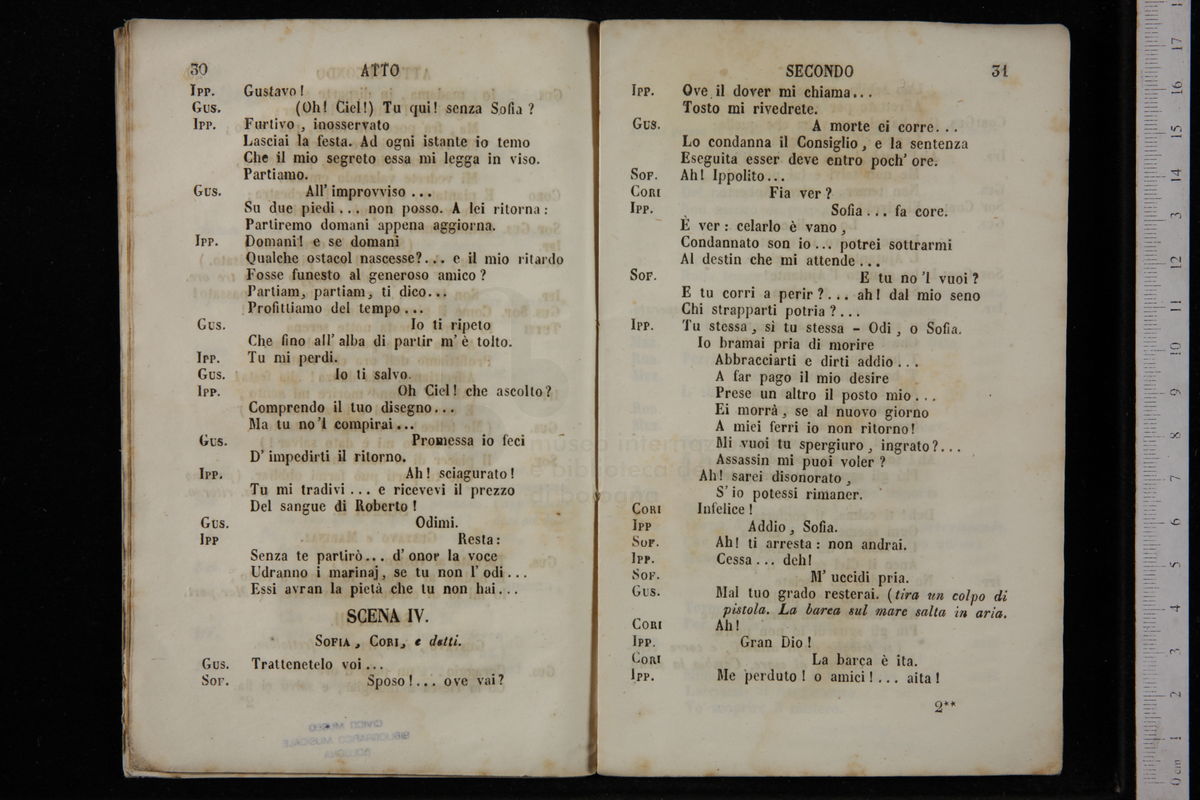 30 ATTO
IPP. Gustavo!
GUS. (Oh! Ciel!) Tu qui! senza Sofia?
IPP. Furtivo, inosservato
Lasciai la festa. Ad ogni istante io temo
Che il mio segreto essa mi legga in viso.
Partiamo.
GUS. All' improvviso...
Su due piedi... non posso. A lei ritorna:
Partiremo domani appena aggiorna.
IPP. Domani! e se domani
Qualche ostacol nascesse?... e il mio ritardo
Fosse funesto al generoso amico?
Partiam, partiam, ti dico...
Profittiamo del tempo...
GUS. Io ti ripeto
Che fino all' alba di partir m' è tolto.
IPP. Tu mi perdi.
GUS. Io ti salvo.
IPP. Oh Ciel! che ascolto?
Comprendo il tuo disegno...
Ma tu no 'l compirai...
GUS. Promessa io feci
D' impedirti il ritorno.
IPP. Ah! sciagurato!
Tu mi tradivi... e ricevevi il prezzo
Del sangue di Roberto!
GUS. Odimi.
IPP Resta:
Senza te partirò... d' onor la voce
Udranno i marinaj, se tu non l' odi...
Essi avran la pietà che tu non hai...
SCENA IV.
SOFIA, CORI, e detti.
GUS. Trattenetelo voi...
SOF. Sposo!... ove vai?
CIVICO MUSEO
BIBLIOGRAFICO MUSICALE
BOLOGNA
SECONDO 31
IPP. Ove il dover mi chiama...
Tosto mi rivedrete.
GUS. A morte ei corre...
Lo condanna il Consiglio, e la sentenza
Eseguita esser deve entro poch' ore.
SOF. Ah! Ippolito...
CORI Fia ver?
IPP. Sofia... fa core.
È ver: celarlo è vano,
Condannato son io... potrei sottrarmi
Al destin che mi attende...
SOF. E tu no 'l vuoi?
E tu corri a perir?... ah! dal mio seno
Chi strapparti potria?...
IPP. Tu stessa, sì tu stessa - Odi, o Sofia.
Io bramai pria di morire
Abbracciarti e dirti addio...
A far pago il mio desire
Prese un altro il posto mio...
Ei morrà, se al nuovo giorno
A miei ferri io non ritorno!
Mi vuoi tu spergiuro, ingrato?...
Assassin mi puoi voler?
Ah! sarei disonorato,
S' io potessi rimaner.
CORI Infelice!
IPP Addio, Sofia.
SOF. Ah! ti arresta: non andrai.
IPP. Cessa... deh!
SOF. M' uccidi pria.
GUS. Mal tuo grado resterai. (tira un colpo di
pistola. La barca sul mare salta in aria.
CORI Ah!
IPP. Gran Dio!
CORI La barca è ita.
IPP. Me perduto! o amici!... aita!
2**